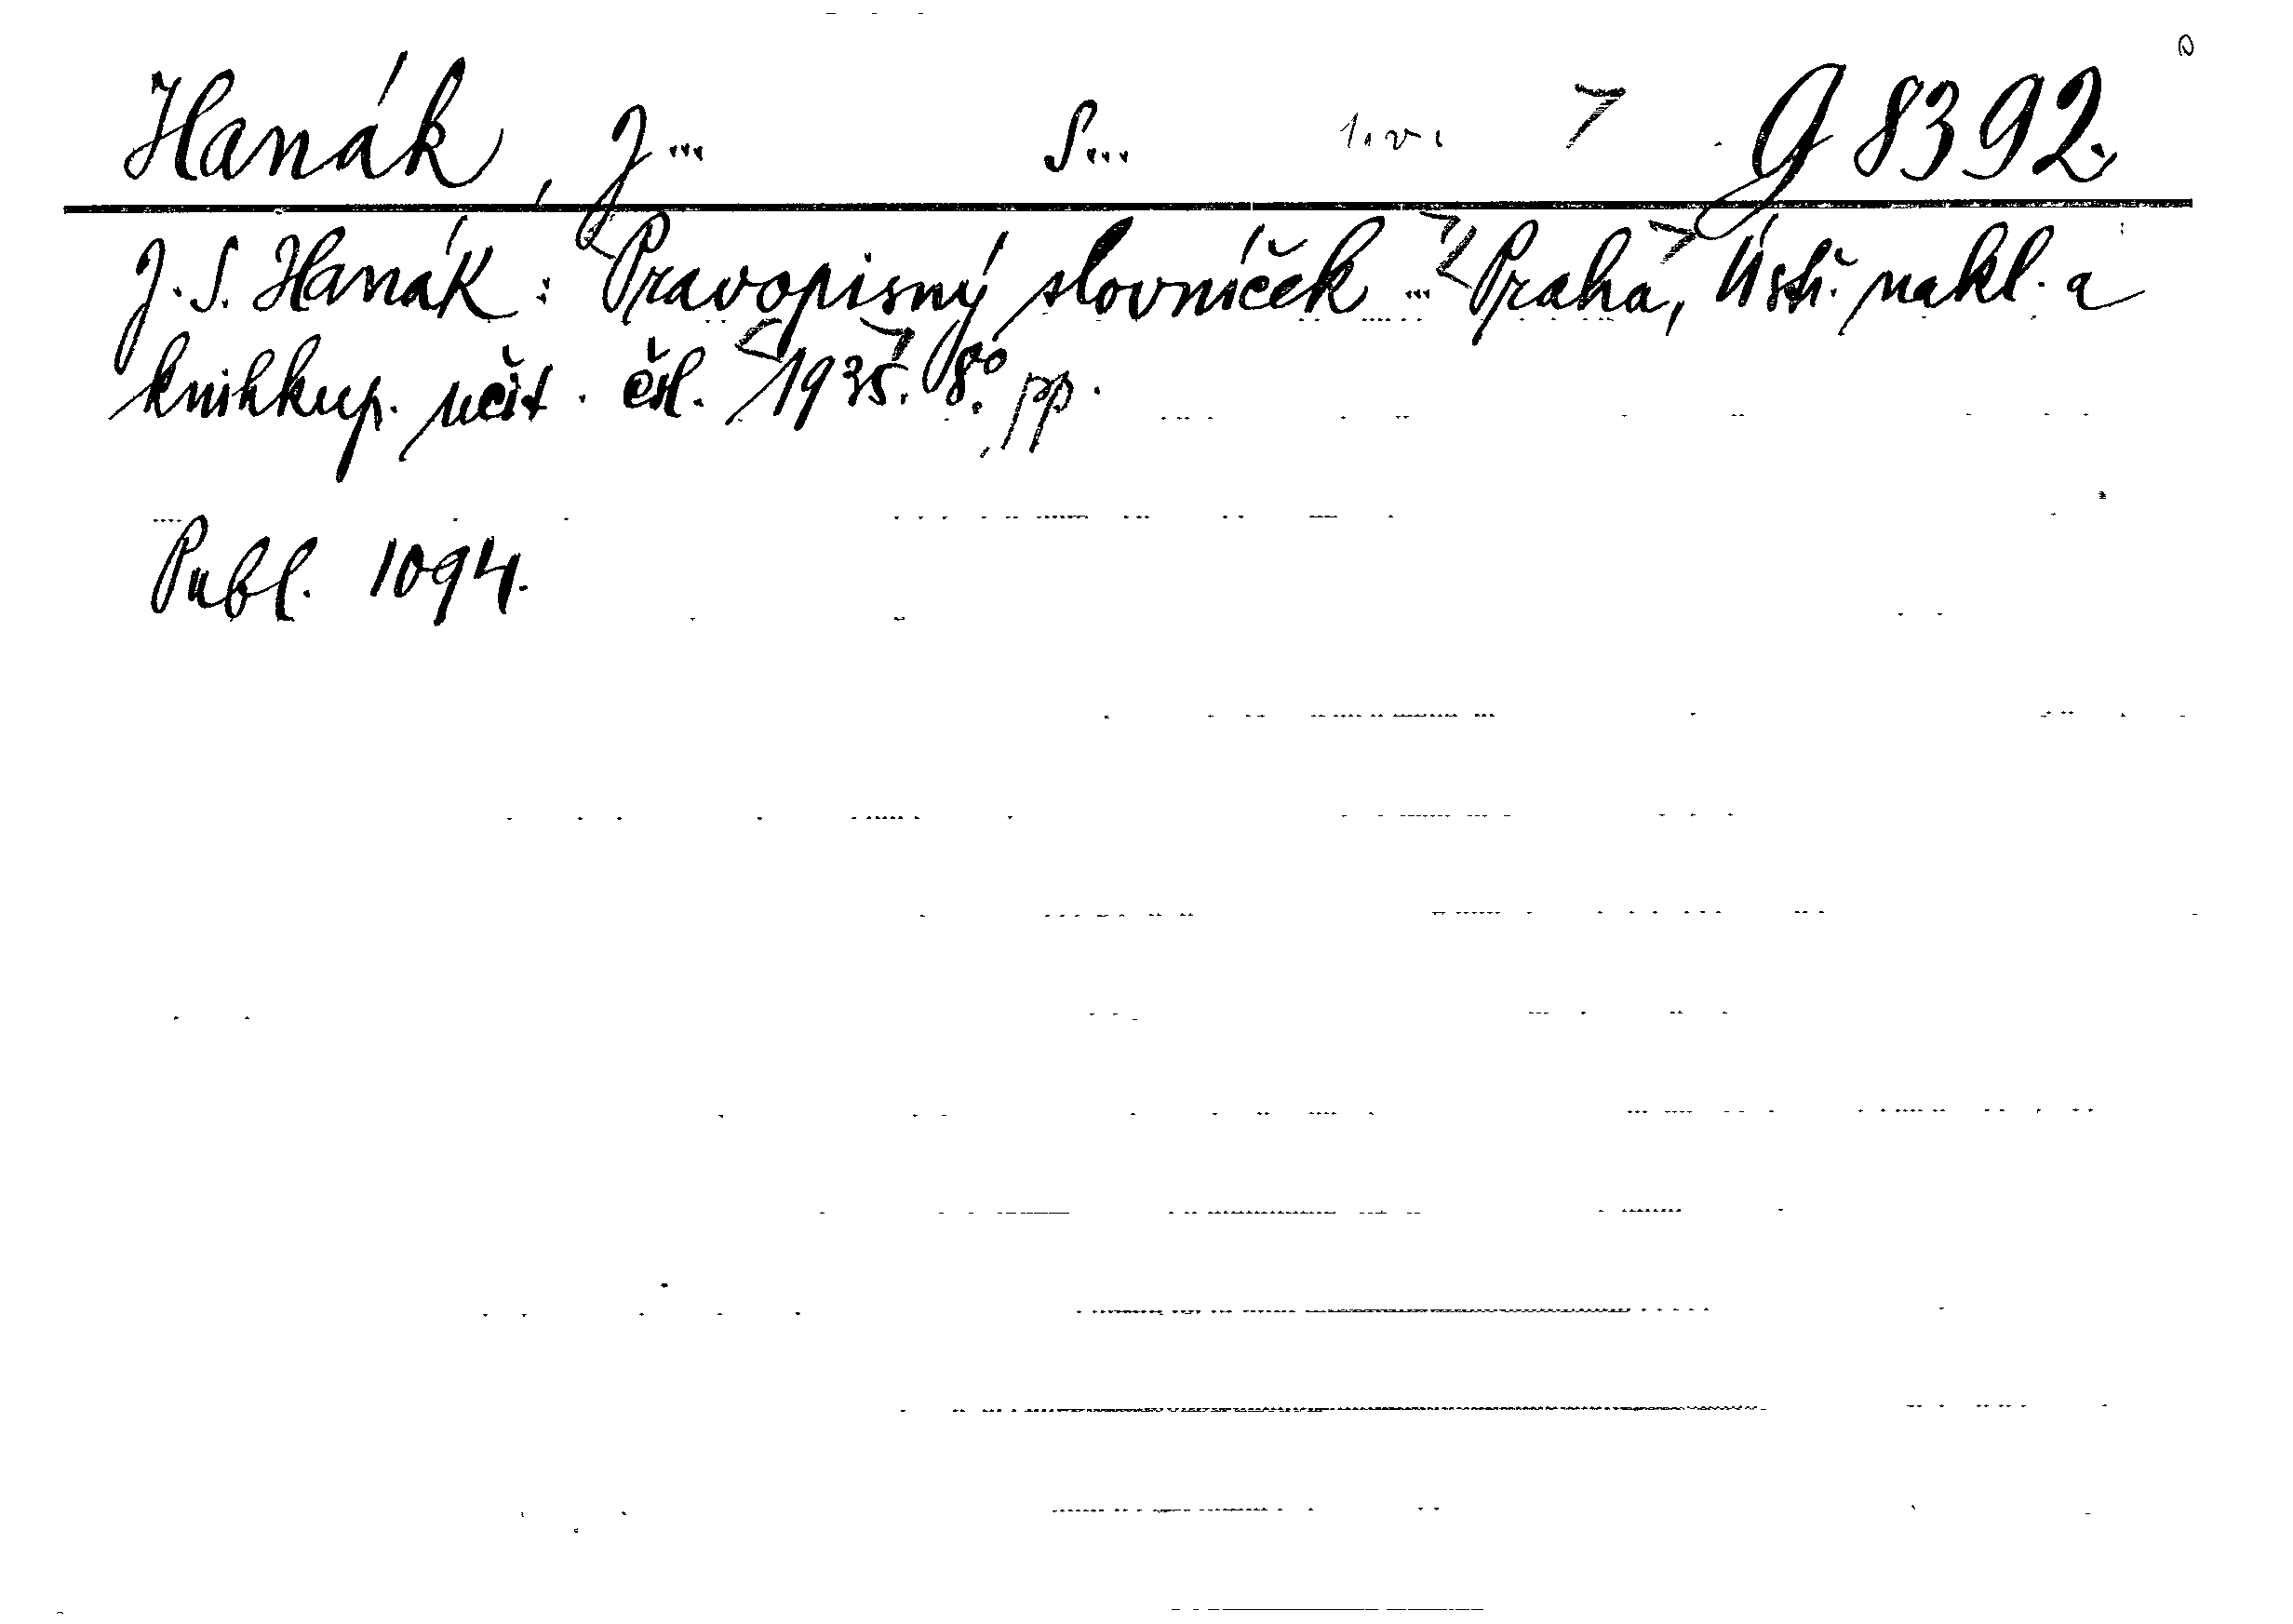 Hanák, J... S... 1. v. G 8392.
J. S. Hanák: Pravopisný slovníček ... Praha, Ústř. nakl. a
knihkup. učit. čsl. 1935. 8° pp.
Publ. 1094.